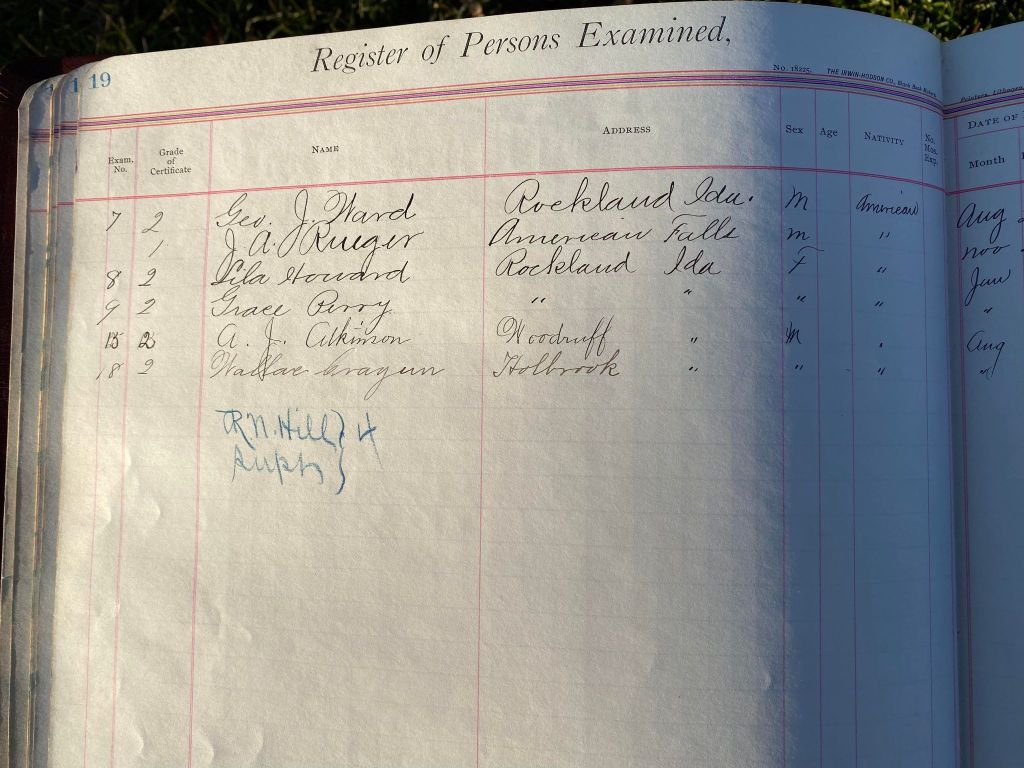 1 1 19
Register of Persons Examined,
No. 18225. THE IRWIN-HODSON CO.,
DATE OF
Exam. No. Grade of Certificate NAME ADDRESS Sex Age NATIVITY No. Mos. Exp. Month
7 2 Geo. J. Ward Rockland Ida. M American Aug
1 J. A. Rueger American Falls m " nov
8 2 Lila Howard Rockland Ida F " Jan
9 2 Grace Perry " " " " "
15 2 A. J. Atkinson Woodruff " M " Aug
18 2 Wallace Cragun Holbrook " " " "
R N. Hill } 4
Supt